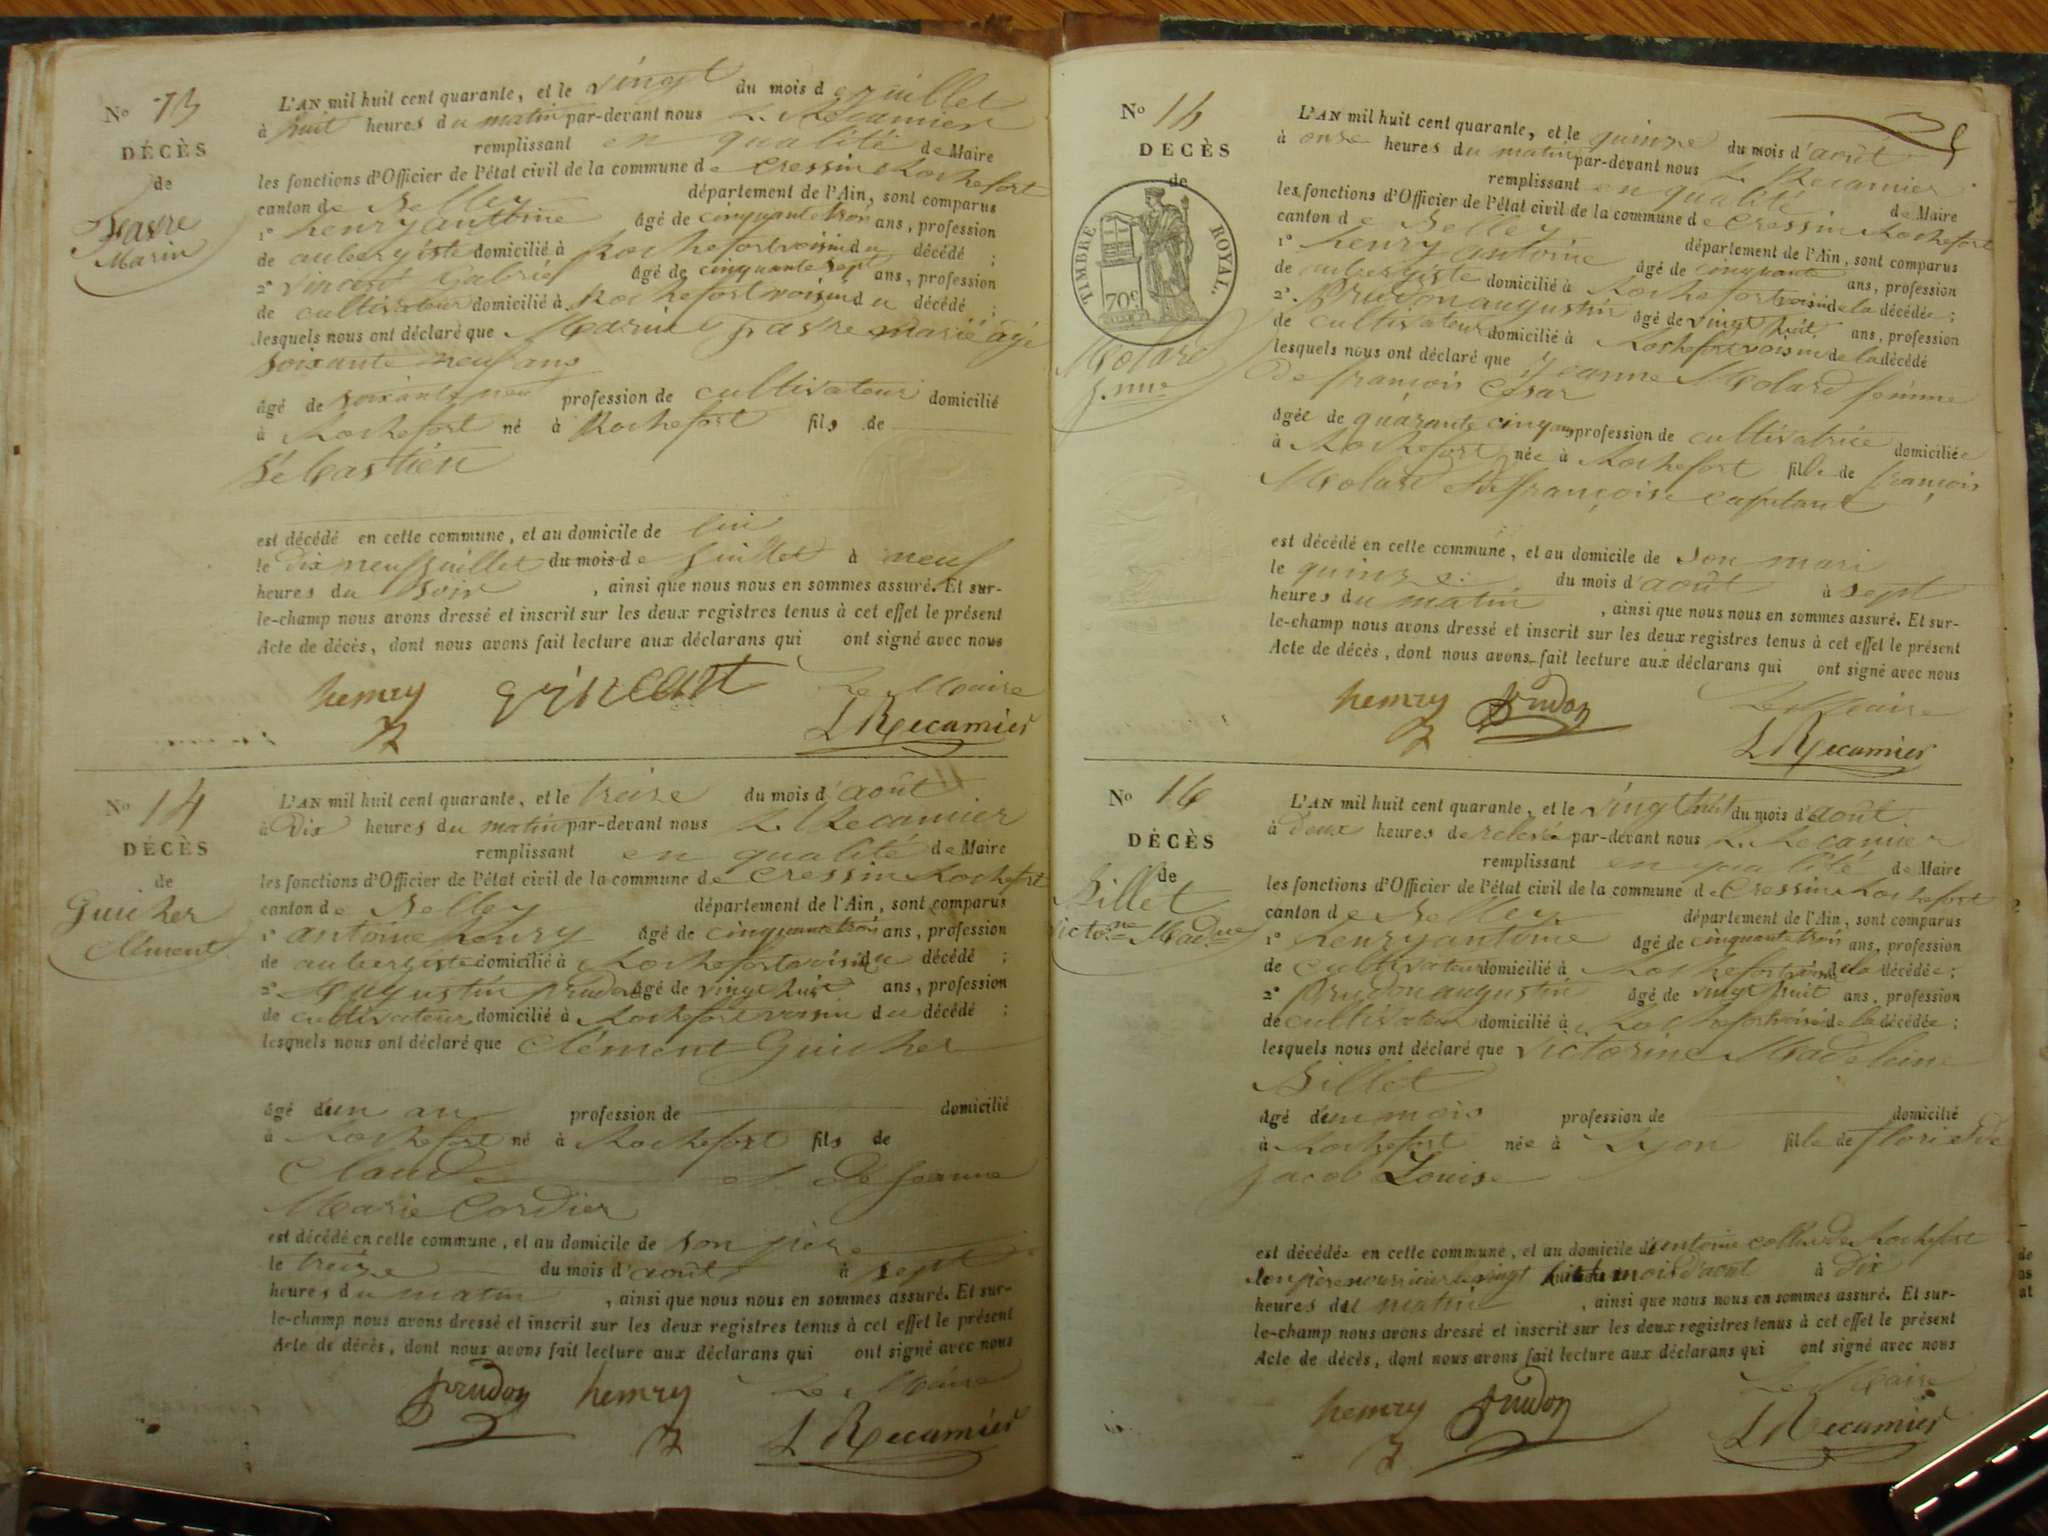 No 13
DÉCÈS
de
Favre
Marin
L'AN mil huit cent quarante, et le vingt du mois de juillet
à huit heures du matin par-devant nous L. Recamier
remplissant en qualité de Maire
les fonctions d'Officier de l'état civil de la commune de Cressin Rochefort
canton de Belley département de l'Ain, sont comparus
1° henry antoine âgé de cinquante trois ans, profession
de aubergiste domicilié à Rochefort voisin du décédé ;
2° vincent Gabriel âgé de cinquante sept ans, profession
de cultivateur domicilié à Rochefort voisin du décédé ;
lesquels nous ont déclaré que Marin favre marié âgé
soixante neuf ans
âgé de soixante neuf profession de cultivateur domicilié
à Rochefort né à Rochefort fils de
Sébastien
est décédé en cette commune, et au domicile de lui
le dix neuf juillet du mois de juillet à neuf
heures du soir , ainsi que nous nous en sommes assuré. Et sur-
le-champ nous avons dressé et inscrit sur les deux registres tenus à cet effet le présent
Acte de décès, dont nous avons fait lecture aux déclarans qui ont signé avec nous
hemry vincent Le Maire
L Recamier
No 14
DÉCÈS
de
Guicher
Clément
L'AN mil huit cent quarante, et le treize du mois d'août
à Dix heures du matin par-devant nous L. Recamier
remplissant en qualité de Maire
les fonctions d'Officier de l'état civil de la commune de Cressin Rochefort
canton de Belley département de l'Ain, sont comparus
1° antoine henry âgé de cinquante trois ans, profession
de aubergiste domicilié à Rochefort voisin du décédé ;
2° Augustin prudon âgé de vingt huit ans, profession
de cultivateur domicilié à Rochefort voisin du décédé ;
lesquels nous ont déclaré que Clément Guicher
âgé d'un an profession de domicilié
à Rochefort né à Rochefort fils de
Claude et de Jeanne
Marie Cordier
est décédé en cette commune, et au domicile de son père
le treize du mois d'août à sept
heures du matin , ainsi que nous nous en sommes assuré. Et sur-
le-champ nous avons dressé et inscrit sur les deux registres tenus à cet effet le présent
Acte de décès, dont nous avons fait lecture aux déclarans qui ont signé avec nous
prudon hemry Le Maire
L Recamier
No 15
DECÈS
de
TIMBRE ROYAL.
70c
Molard
L'AN mil huit cent quarante, et le quinze du mois d'août
à onze heures du matin par-devant nous L. Recamier
remplissant en qualité de Maire
les fonctions d'Officier de l'état civil de la commune de Cressin Rochefort
canton de Belley département de l'Ain, sont comparus
1° henry antoine âgé de cinquante ans, profession
de aubergiste domicilié à Rochefort voisin de la décédée ;
2° Prudon augustin âgé de vingt huit ans, profession
de cultivateur domicilié à Rochefort voisin de la décédé
lesquels nous ont déclaré que Jeanne Molard femme
de françois César
âgée de quarante cinq ans profession de cultivatrice domiciliée
à Rochefort née à Rochefort fille de françois
Molard et de françoise
est décédé en cette commune, et au domicile de son mari
le quinze du mois d'août à sept
heures du matin , ainsi que nous nous en sommes assuré. Et sur-
le-champ nous avons dressé et inscrit sur les deux registres tenus à cet effet le présent
Acte de décès, dont nous avons fait lecture aux déclarans qui ont signé avec nous
hemry prudon Le Maire
L Recamier
No 16
DÉCÈS
de
Billet
L'AN mil huit cent quarante, et le vingt huit du mois d'août
à deux heures de relevée par-devant nous L. Recamier
remplissant en qualité de Maire
les fonctions d'Officier de l'état civil de la commune de Cressin Rochefort
canton de Belley département de l'Ain, sont comparus
1° henry antoine âgé de cinquante trois ans, profession
de cultivateur domicilié à Rochefort voisin de la décédée ;
2° Prudon augustin âgé de vingt huit ans, profession
de cultivateur domicilié à Rochefort voisin de la décédée ;
lesquels nous ont déclaré que victorine Madeleine
Billet
âgé d'un mois profession de domicilié
à Rochefort née à Lyon fille de flori et de
Jacob Louise
est décédée en cette commune, et au domicile d'antoine de Rochefort
son père nourricier le vingt huit du mois d'août à dix
heures du matin , ainsi que nous nous en sommes assuré. Et sur-
le-champ nous avons dressé et inscrit sur les deux registres tenus à cet effet le présent
Acte de décès, dont nous avons fait lecture aux déclarans qui ont signé avec nous
hemry prudon Le Maire
L Recamier